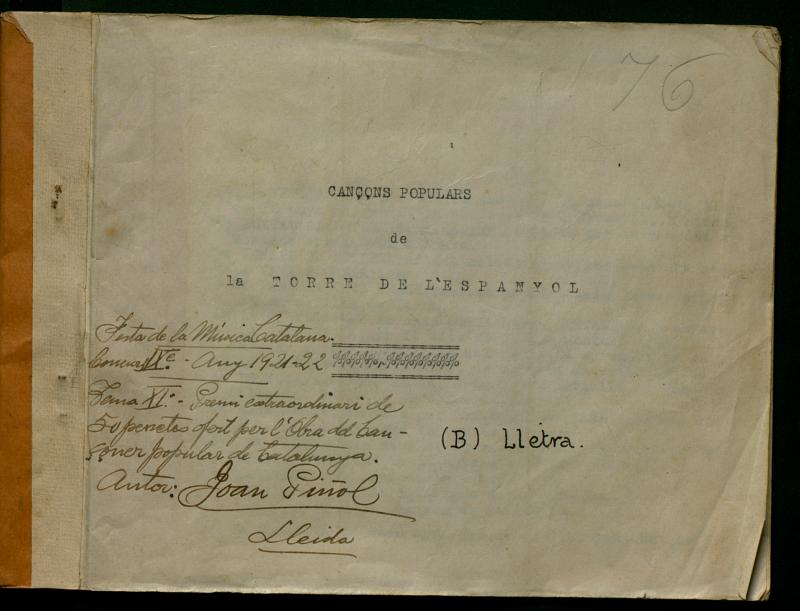 76
CANÇQNS POPULARS
de
la TORRE DE L'ESPANYOL
Festa de la Música Catalana.
Concurs IXè - Any 1921-22
%%%%%,%%%%%%%%
Tema XI.- Premi extraordinari de
50 pessetes ofert per l'Obra del Can-
çoner popular de Catalunya.
(B) Lletra.
Autor: Joan Piñol
Lleida